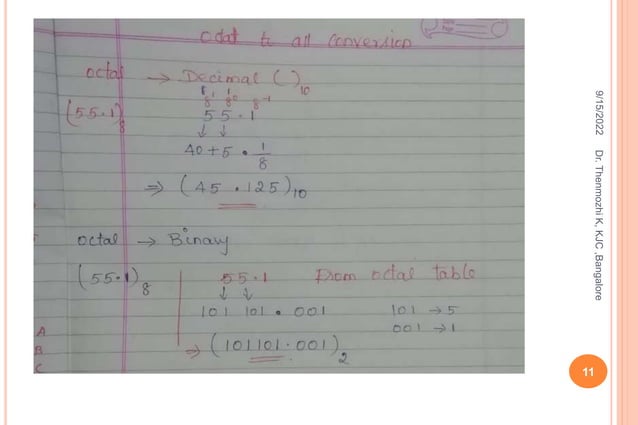 octal to all Conversion
octal → Decimal ( )10
8¹ 8⁰ 8⁻¹
(55.1)8 55.1
↓ ↓
40+5 . 1/8
⇒ (45.125)10
octal → Binary
(55.1)8 55.1 From octal table
↓ ↓
101 101 . 001 101 → 5
001 → 1
→ (101101.001)2
A
B
C
9/15/2022 Dr. Thenmozhi K, KJC ,Bangalore
11